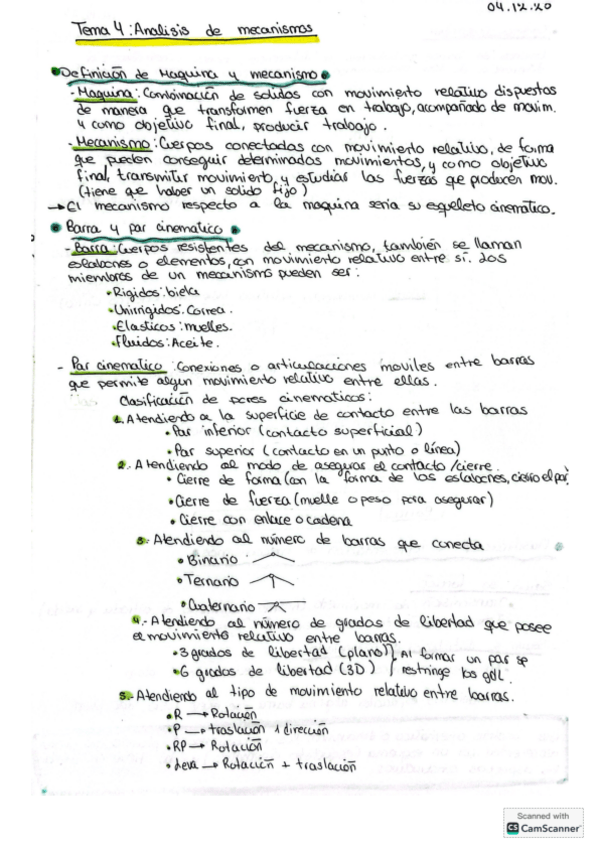 04.12.20
Tema 4: Analisis de mecanismos
• Definición de Maquina y mecanismo •
- Maquina: Combinación de solidos con movimiento relativo dispuestos
de manera que transformen fuerza en trabajo, acompañado de movim.
y como objetivo final, producir trabajo.
- Mecanismo: Cuerpos conectados con movimiento relativo, de forma
que pueden conseguir determinados movimientos, y como objetivo
final, transmitir movimiento, y estudiar las fuerzas que producen mov.
(tiene que haber un solido fijo)
→ El mecanismo respecto a la maquina seria su esqueleto cinematico.
• Barra y par cinematico •
- Barra: Cuerpos resistentes del mecanismo, también se llaman
eslabones o elementos, con movimiento relativo entre sí. Los
miembros de un mecanismo pueden ser:
• Rigidos: biela
• Unirrigidos: Correa.
• Elasticos: muelles.
• Fluidos: Aceite.
- Par cinematico: Conexiones o articulaciones moviles entre barras
que permite algun movimiento relativo entre ellas.
Clasificación de pares cinematicos:
1. Atendiendo a la superficie de contacto entre las barras
• Par inferior (contacto superficial)
• Par superior (contacto en un punto o línea)
2.- Atendiendo al modo de asegurar el contacto/cierre.
• Cierre de forma (con la forma de los eslabones, cierro el par)
• Cierre de fuerza (muelle o peso para asegurar)
• Cierre con enlace o cadena
3.- Atendiendo al número de barras que conecta
• Binario
• Ternario
• Cuaternario
4.- Atendiendo al número de grados de libertad que posee
el movimiento relativo entre barras.
• 3 grados de libertad (plano) } Al formar un par se
• 6 grados de libertad (3D) } restringe los gdl.
5.- Atendiendo al tipo de movimiento relativo entre barras.
• R → Rotación
• P → traslación 1 dirección
• RP → Rotación
• Leva → Rotación + traslación
Scanned with
CS CamScanner